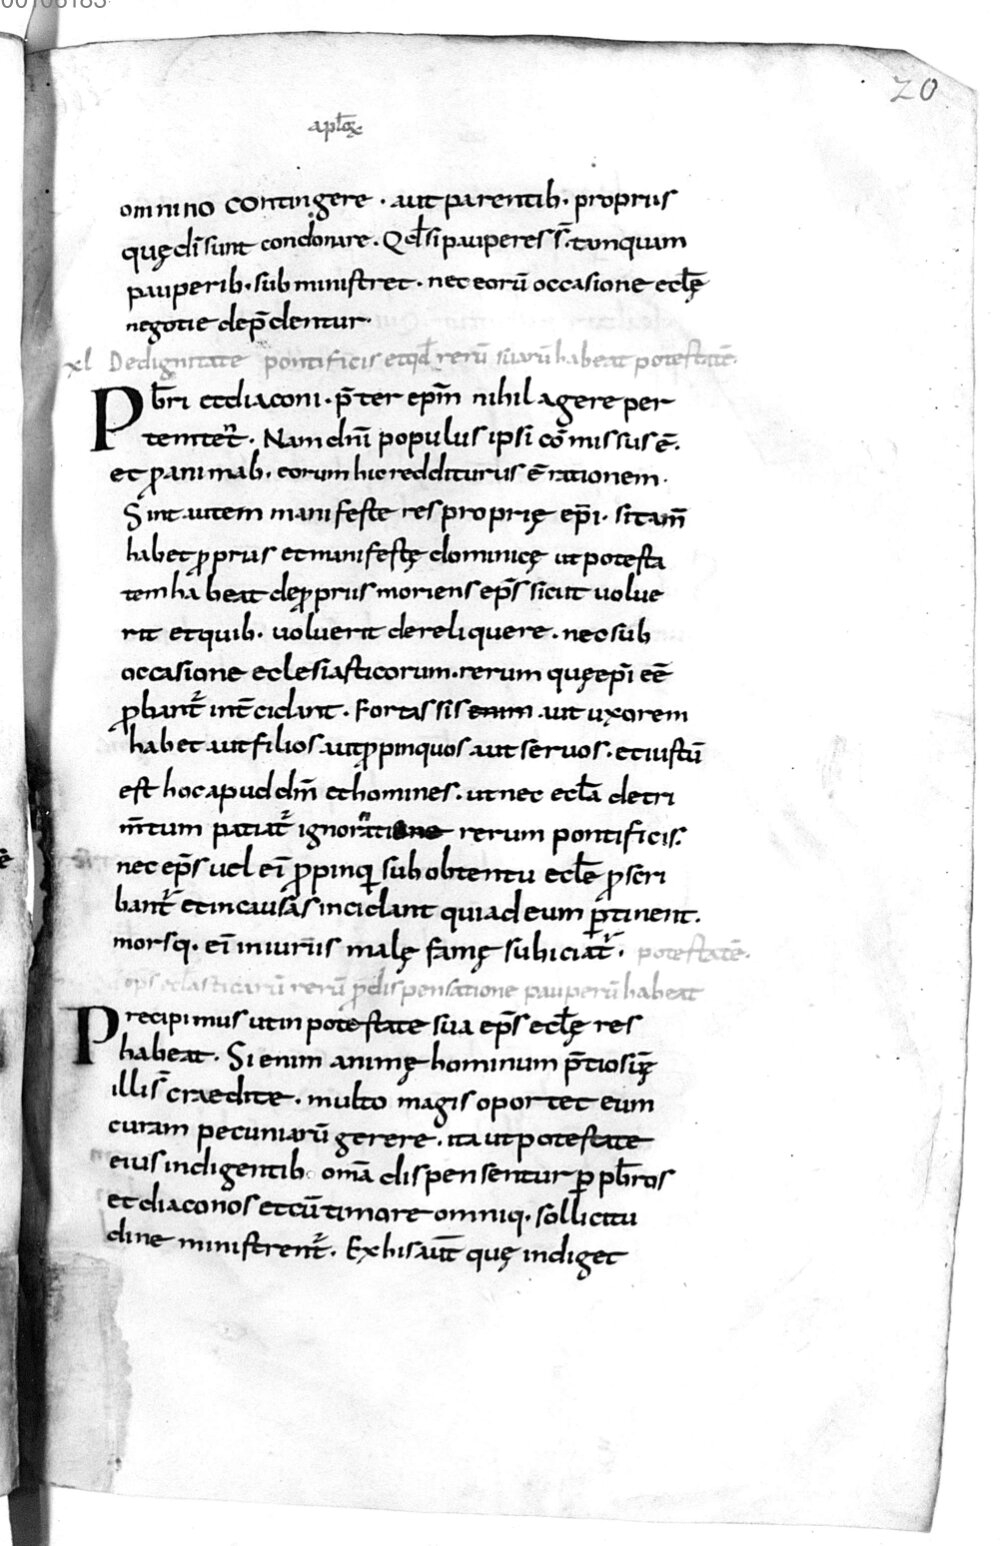 20
apl̅oꝝ
omnino contingere · aut parentib· propriis
quę di̅ sunt condonare · Qd̅ si pauperes s̅· tanquam
pauperib· subministret · nec eoru̅ occasione eccl̅ę
negotie dep̅dentur·
xl De dignitate pontificis et qd̅ reru̅ suaru̅ habeat potestate̅·
Pb̅ri et diaconi · p̅ter ep̅m nihil agere per
temtet̅· Nam dn̅i populus ipsi co̅missus e̅·
et ꝓ animab· eorum hic redditurus e̅ rationem·
Sint autem manifeste res proprię ep̅i· si tam̅
habet ꝓprias et manifestę dominicę ut potesta
tem habeat de ꝓpriis moriens ep̅s sicut uolue
rit et quib· uoluerit derelinquere · nec sub
occasione eclesiasticorum · rerum quę ep̅i ee̅
ꝓbant̅ int̅cidant · Fortassis enim aut uxorem
habet aut filios aut ꝓpinquos aut seruos · et iustu̅
est hoc apud dm̅ et homines · ut nec ecl̅a detri
m̅tum patiat̅ ignoratione rerum pontificis·
nec ep̅s uel ei̅ ꝓpinqi sub obtentu ecl̅e ꝓscri
bant̅ et in causas incidant qui ad eum ꝑtinent·
morsq· ei̅ iniuriis malę famę subiciat̅· potestate̅·
ep̅s ecl̅asticaru̅ reru̅ ꝓ dispensatione pauperu̅ habeat
Precipimus ut in potestate sua ep̅s ecl̅ę res
habeat · Si enim animę hominum p̅tiosię̅
illis̅ craedite · multo magis oportet eum
curam pecuniaru̅ gerere · ita ut potestate
eius indigentib· om̅a dispensentur ꝑ pb̅ros
et diaconos et cu̅ timore omniq· sollicitu
dine ministrent̅· Ex his aut̅ quę indiget